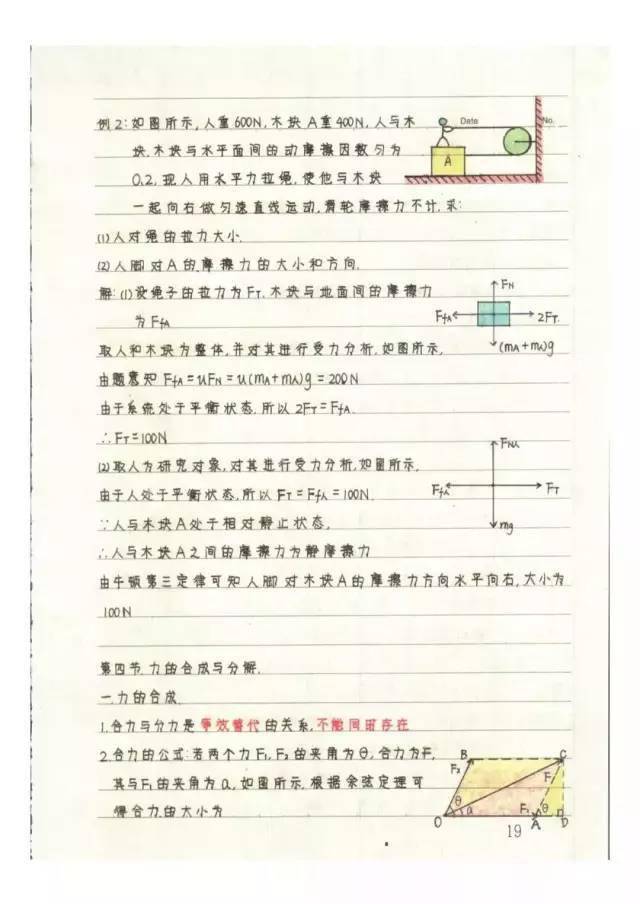 例2:如图所示,人重600N,木块A重400N,人与木
块.木块与水平面间的动摩擦因数匀为
0.2,现人用水平力拉绳,使他与木块
一起向右做匀速直线运动,滑轮摩擦力不计,求:
Date
No.
A
(1)人对绳的拉力大小.
(2)人脚对A的摩擦力的大小和方向.
解:(1)设绳子的拉力为FT.木块与地面间的摩擦力
为FfA
FN
FfA
2FT
(mA+m人)g
取人和木块为整体,并对其进行受力分析.如图所示.
由题意知 FfA=uFN=u(mA+m人)g=200N
由于系统处于平衡状态.所以2FT=FfA.
∴FT=100N
(2)取人为研究对象,对其进行受力分析,如图所示.
由于人处于平衡状态,所以FT=Ff人=100N.
FN人
Ff人
FT
mg
∵人与木块A处于相对静止状态,
∴人与木块A之间的摩擦力为静摩擦力
由牛顿第三定律可知人脚对木块A的摩擦力方向水平向右,大小为
100N
第四节.力的合成与分解.
一.力的合成.
1.合力与分力是等效替代的关系,不能同时存在
2.合力的公式:若两个力F1,F2的夹角为θ,合力为F,
其与F1的夹角为α,如图所示.根据余弦定理可
得合力的大小为
B
C
F2
F
θ
α
F1
θ
O
A
D
19